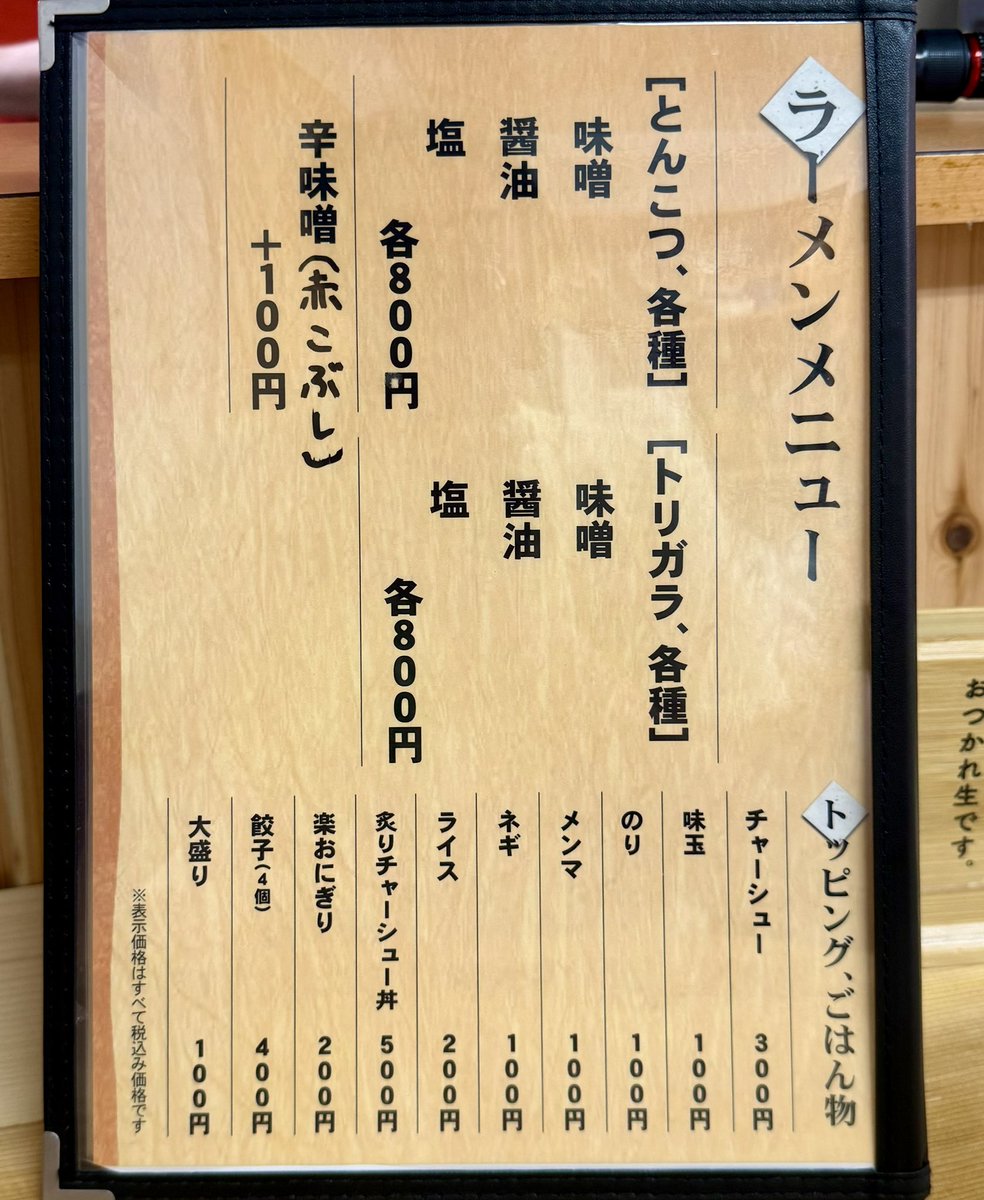 ラーメンメニュー
[とんこつ、各種]
味噌
醤油
塩
各800円
辛味噌(赤こぶし)
+100円
[トリガラ、各種]
味噌
醤油
塩
各800円
トッピング、ごはん物
チャーシュー 300円
味玉 100円
のり 100円
メンマ 100円
ネギ 100円
ライス 200円
炙りチャーシュー丼 500円
楽おにぎり 200円
餃子(4個) 400円
大盛り 100円
※表示価格はすべて税込み価格です
おつかれ生です。